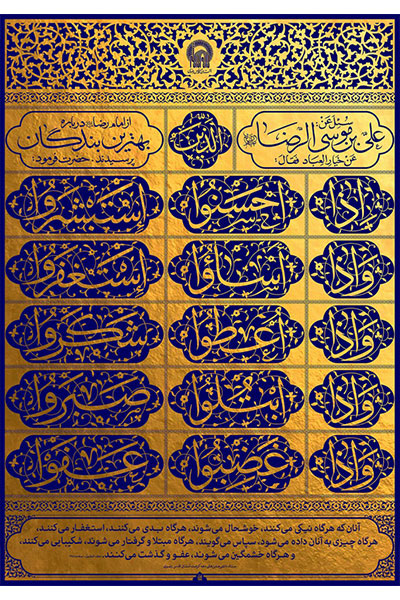 سُئِلَ عَن
علی بن موسی الرضا
عَن خیار العِباد فَقالَ:
الذین
از امام رضا درباره
بهترین بندگان
پرسیدند. حضرت فرمود:
اذا احسنوا استبشروا
واذا اساؤا استغفروا
واذا اعطوا شکروا
واذا ابتلوا صبروا
واذا غضبوا عفوا
آنان که هرگاه نیکی می‌کنند، خوشحال می‌شوند، هرگاه بدی می‌کنند، استغفار می‌کنند،
هرگاه چیزی به آنان داده می‌شود، سپاس می‌گویند، هرگاه مبتلا و گرفتار می‌شوند، شکیبایی می‌کنند،
و هرگاه خشمگین می‌شوند، عفو و گذشت می‌کنند.